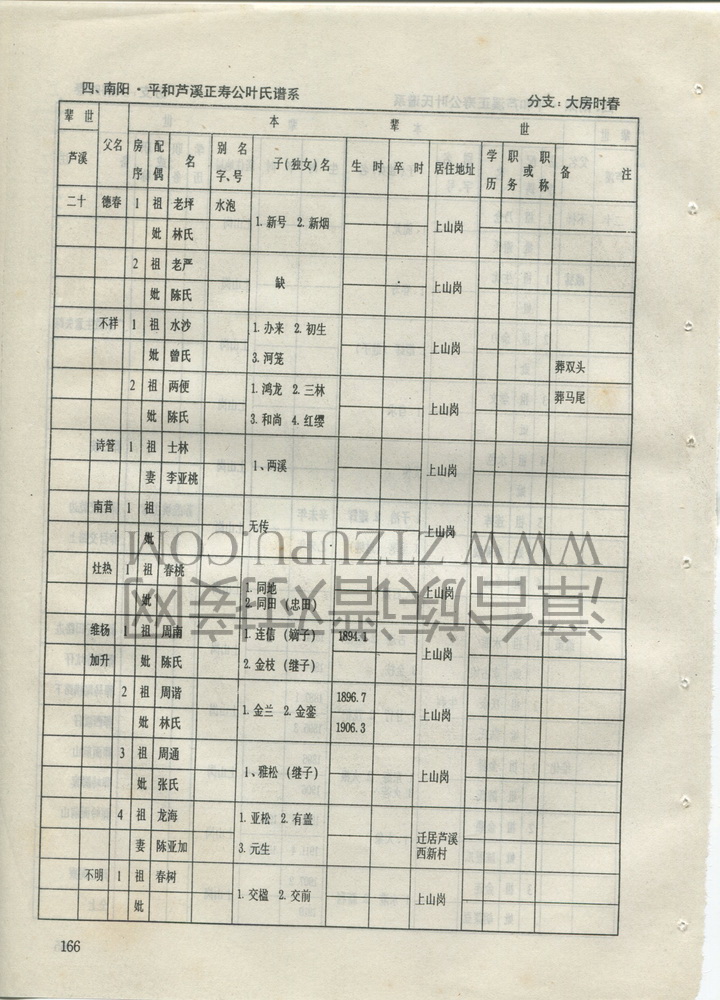 四、南阳·平和芦溪正寿公叶氏谱系 分支:大房时春
辈世 父名 本辈世
芦溪 房序 配偶 名 别名字、号 子(独女)名 生时 卒时 居住地址 学历 职务或职称 备注
二十 德春 1 祖 老坪 水泡 1.新号 2.新烟 上山岗
妣 林氏
2 祖 老严 缺 上山岗
妣 陈氏
不祥 1 祖 水沙 1.办来 2.初生 上山岗
妣 曾氏 3.河笼 葬双头
2 祖 两便 1.鸿龙 2.三林 上山岗 葬马尾
妣 陈氏 3.和尚 4.红缨
诗管 1 祖 士林 1、两溪 上山岗
妻 李亚桃
南营 1 祖 无传 上山岗
妣
灶热 1 祖 春桃 1.同地 上山岗
妣 2.同田(忠田)
维杨 1 祖 周南 1.连信(嫡子) 1894.1 上山岗
加升 妣 陈氏 2.金枝(继子)
2 祖 周谐 1.金兰 2.金銮 1896.7 上山岗
妣 林氏 1906.3
3 祖 周通 1、雅松(继子) 上山岗
妣 张氏
4 祖 龙海 1.亚松 2.有盖 迁居芦溪西新村
妻 陈亚加 3.元生
不明 1 祖 春树 1.交楹 2.交前 上山岗
妣
166
漳台族谱对接网
WWW.ZTZUPU.COM